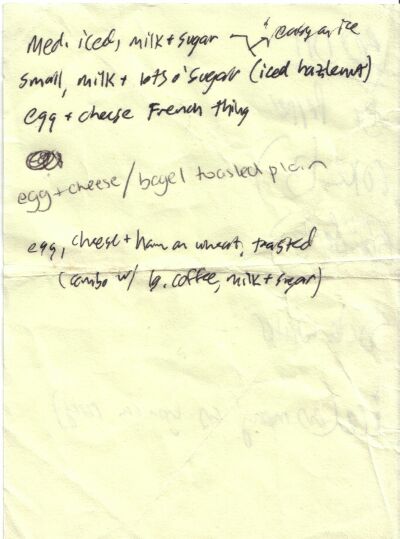 Med. iced, milk + sugar → easy on ice
small, milk + lots o' sugar (iced hazlenut)
egg + cheese French thing
egg + cheese / bagel toasted plain
egg, cheese + ham on wheat, toasted
(combo w/ lg. coffee, milk + sugar)